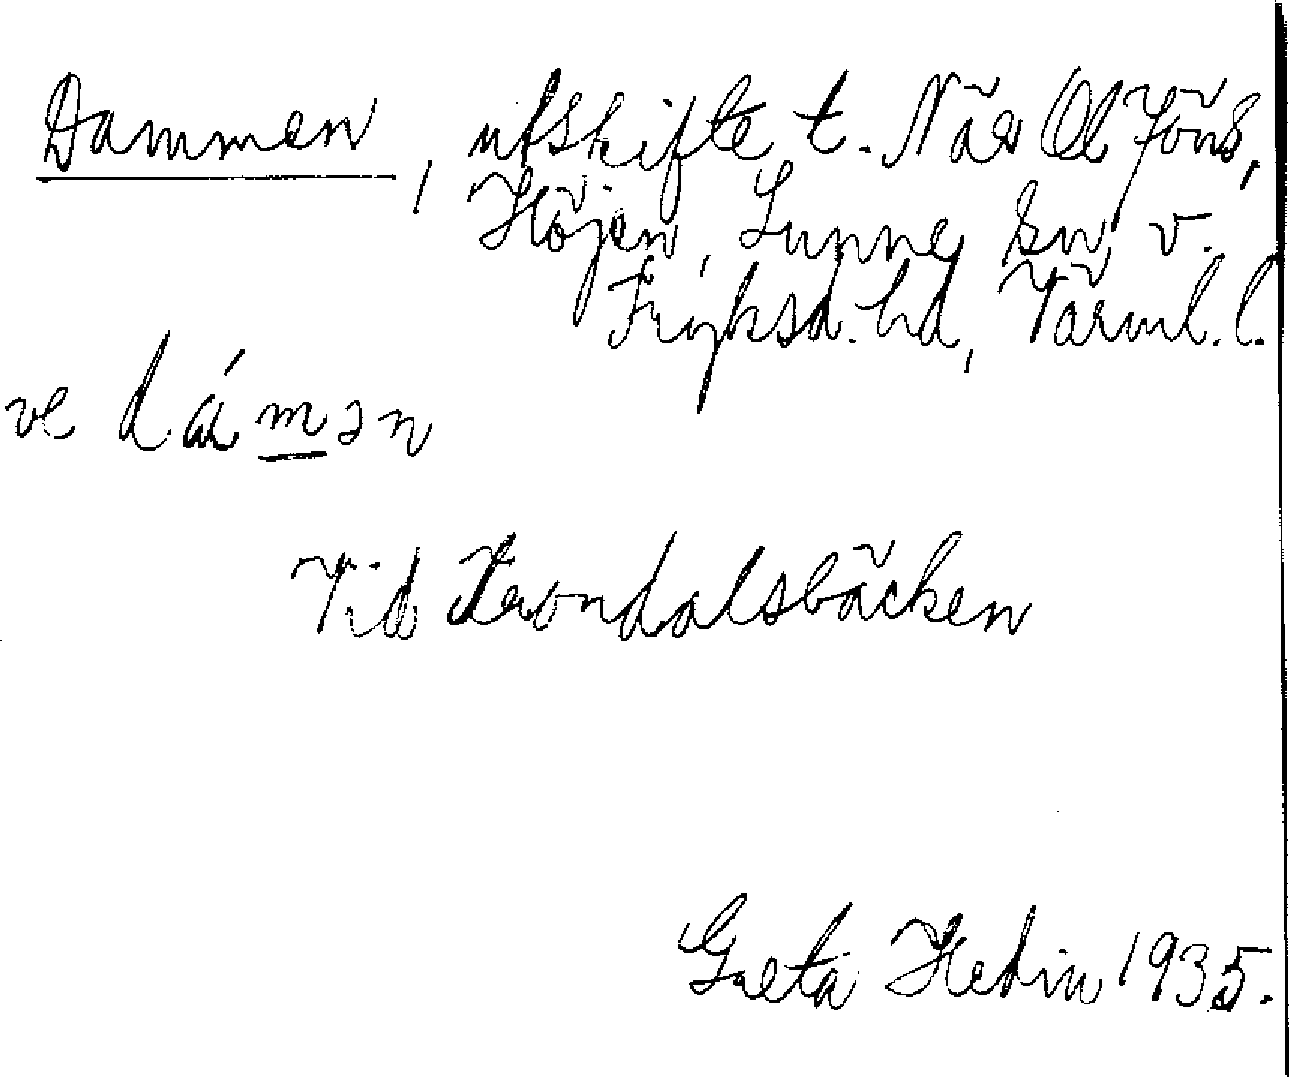 Dammen, utskifte t. Näs Ol Jöns,
Höjen, Sunne sn, v.
Fryksd. hd, Värml. l.
ve dámən
Vid Krondalsbäcken
Greta Hedin 1935.